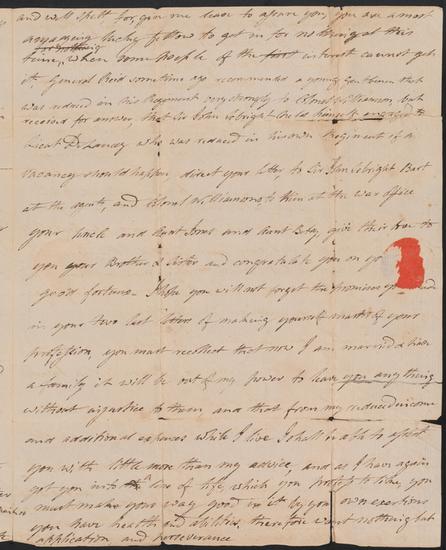 and well spelt for, give me leave to assure you, you are a most
amazeing lucky fellow to get in for nothing at this
time, when some people of the first interest cannot get
it, General Reid some time ago recommended a young Gentleman that
was reduced in his Regiment very strongly to Colonel Williamson, but
received for answer, that Sir John Sebright held himself engaged to
Lieut De Lancey who was reduced in his own Regiment if a
vacancy should happen, direct your letter to Sir John Sebright Bart
at the agents, and Colonel Williamson's to him at the War office
your Uncle and Aunt Jones and Aunt Betsy, give their love to
you your Brother & Sister and congratulate you on yo
good fortune. I hope you will not forget the promises you
in your two last letters of making yourself master of your
profession, you must recollect that now I am married & have
a family it will be out of my power to leave you any thing
without injustice to them, and that from my reduced income
and additional expences while I live I shall be able to assist
you with little more than my advice, and as I have again
got you into a line of life, which you profess to like, you
must make your way good in it by your own exertions
you have health and abilities, therefore want nothing but
application and perseverance